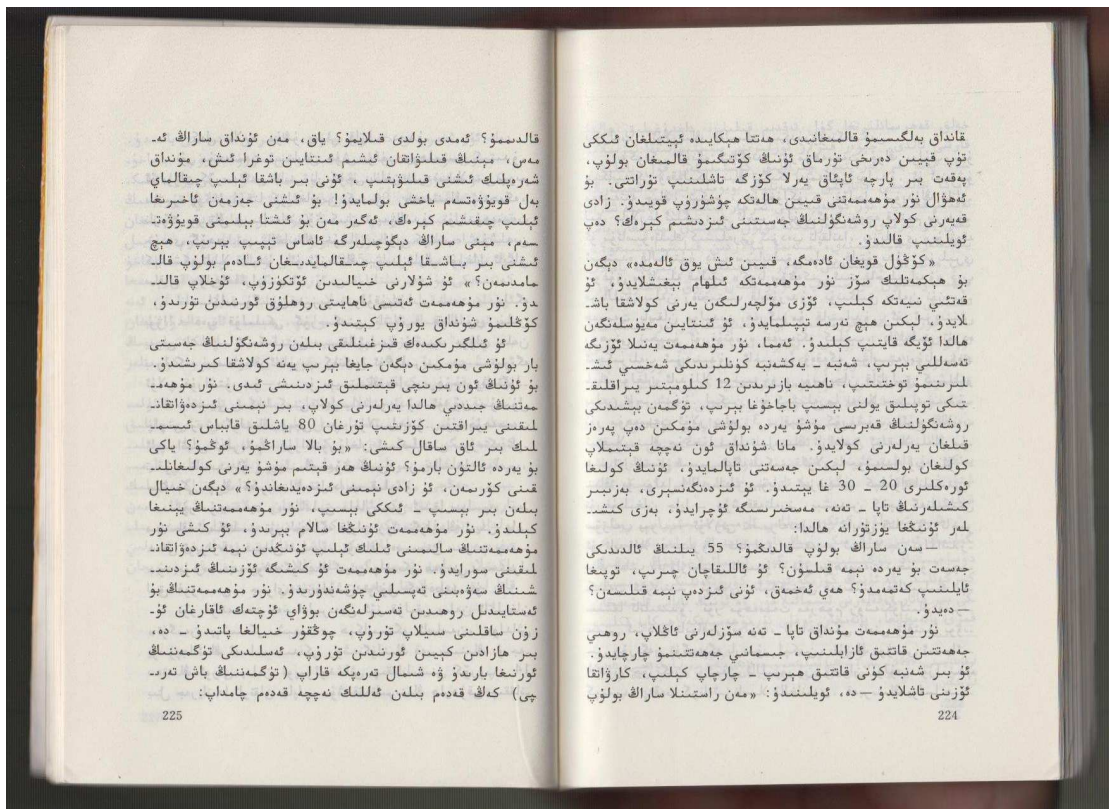 قانداق بەلگىسىمۇ قالمىغانىدى، ھەتتا ھېكايىدە ئېيتىلغان ئىككى
تۈپ قېيىن دەرىخى تۇرماق ئۇنىڭ كۆتىگىمۇ قالمىغان بولۇپ،
پەقەت بىر پارچە ئاپئاق يەرلا كۆزگە تاشلىنىپ تۇراتتى. بۇ
ئەھۋال نۇر مۇھەممەتنى قىيىن ھالەتكە چۈشۈرۈپ قويىدۇ. زادى
قەيەرنى كولاپ روشەنگۈلنىڭ جەسىتىنى ئىزدىشىم كېرەك؟ دەپ
ئويلىنىپ قالىدۇ.
«كۆڭۈل قويغان ئادەمگە، قىيىن ئىش يوق ئالەمدە» دېگەن
بۇ ھېكمەتلىك سۆز نۇر مۇھەممەتكە ئىلھام بېغىشلايدۇ، ئۇ
قەتئىي نىيەتكە كېلىپ، ئۆزى مۆلچەرلىگەن يەرنى كولاشقا باش-
لايدۇ، لېكىن ھېچ نەرسە تېپىلمايدۇ، ئۇ ئىنتايىن مەيۈسلەنگەن
ھالدا ئۆيگە قايتىپ كېلىدۇ. ئەمما، نۇر مۇھەممەت يەنىلا ئۆزىگە
تەسەللىي بېرىپ، شەنبە ـ يەكشەنبە كۈنلىرىدىكى شەخسىي ئىش-
لىرىنىمۇ توختىتىپ، ناھىيە بازىرىدىن 12 كىلومېتىر يىراقلىق-
تىكى توپىلىق يولنى بېسىپ باجاخۇغا بېرىپ، تۈگمەن بېشىدىكى
روشەنگۈلنىڭ قەبرىسى مۇشۇ يەردە بولۇشى مۇمكىن دەپ پەرەز
قىلغان يەرلەرنى كولايدۇ. مانا شۇنداق ئون نەچچە قېتىملاپ
كولىغان بولسىمۇ، لېكىن جەسەتنى تاپالمايدۇ، ئۇنىڭ كولىغا
ئورەكلىرى 20 ـ 30 غا يېتىدۇ. ئۇ ئىزدەنگەنسېرى، بەزىبىر
كىشىلەرنىڭ تاپا ـ تەنە، مەسخىرىسىگە ئۇچرايدۇ، بەزى كىشى-
لەر ئۇنىڭغا يۈزتۇرانە ھالدا:
—سەن ساراڭ بولۇپ قالدىڭمۇ؟ 55 يىلنىڭ ئالدىدىكى
جەسەت بۇ يەردە نېمە قىلسۇن؟ ئۇ ئاللىقاچان چىرىپ، توپىغا
ئايلىنىپ كەتمەمدۇ؟ ھەي ئەخمەق، ئۇنى ئىزدەپ نېمە قىلىسەن؟
—دەيدۇ.
نۇر مۇھەممەت مۇنداق تاپا ـ تەنە سۆزلەرنى ئاڭلاپ، روھىي
جەھەتتىن قاتتىق ئازابلىنىپ، جىسمانىي جەھەتتىنمۇ چارچايدۇ.
ئۇ بىر شەنبە كۈنى قاتتىق ھېرىپ ـ چارچاپ كېلىپ، كارۋاتقا
ئۆزىنى تاشلايدۇ —دە، ئويلىنىدۇ: «مەن راستىنلا ساراڭ بولۇپ
224
قالدىممۇ؟ ئەمدى بولدى قىلايمۇ؟ ياق، مەن ئۇنداق ساراڭ ئە-
مەس، مېنىڭ قىلىۋاتقان ئىشىم ئىنتايىن توغرا ئىش، مۇنداق
شەرەپلىك ئىشنى قىلىۋېتىپ ، ئۇنى بىر باشقا ئېلىپ چىقالماي
بەل قويۇۋەتسەم ياخشى بولمايدۇ! بۇ ئىشنى جەزمەن ئاخىرىغا
ئېلىپ چىقىشىم كېرەك، ئەگەر مەن بۇ ئىشتا بېلىمنى قويۇۋەت-
سەم، مېنى ساراڭ دېگۈچىلەرگە ئاساس تېپىپ بېرىپ، ھېچ
ئىشنى بىر باشقا ئېلىپ چىقالمايدىغان ئادەم بولۇپ قال-
مامدىمەن؟» ئۇ شۇلارنى خىيالىدىن ئۆتكۈزۈپ، ئۇخلاپ قالى-
دۇ. نۇر مۇھەممەت ئەتىسى ناھايىتى روھلۇق ئورنىدىن تۇرىدۇ،
كۆڭلىمۇ شۇنداق يورۇپ كېتىدۇ.
ئۇ ئىلگىرىكىدەك قىزغىنلىقى بىلەن روشەنگۈلنىڭ جەسىتى
بار بولۇشى مۇمكىن دېگەن جايغا بېرىپ يەنە كولاشقا كىرىشىدۇ.
بۇ ئۇنىڭ ئون بىرىنچى قېتىملىق ئىزدىنىشى ئىدى. نۇر مۇھەم-
مەتنىڭ جىددىي ھالدا يەرلەرنى كولاپ، بىر نېمىنى ئىزدەۋاتقان-
لىقىنى يىراقتىن كۆزىتىپ تۇرغان 80 ياشلىق قابباس ئىسىم-
لىك بىر ئاق ساقال كىشى: «بۇ بالا ساراڭمۇ، ئوڭمۇ؟ ياكى
بۇ يەردە ئالتۇن بارمۇ؟ ئۇنىڭ ھەر قېتىم مۇشۇ يەرنى كولىغانلى-
قىنى كۆرىمەن، ئۇ زادى نېمىنى ئىزدەيدىغاندۇ؟» دېگەن خىيال
بىلەن بىر بېسىپ ـ ئىككى بېسىپ، نۇر مۇھەممەتنىڭ يېنىغا
كېلىدۇ. نۇر مۇھەممەت ئۇنىڭغا سالام بېرىدۇ، ئۇ كىشى نۇر
مۇھەممەتنىڭ سالىمىنى ئىلىك ئېلىپ ئۇنىڭدىن نېمە ئىزدەۋاتقان-
لىقىنى سورايدۇ. نۇر مۇھەممەت ئۇ كىشىگە ئۆزىنىڭ ئىزدىنى-
شىنىڭ سەۋەبىنى تەپسىلىي چۈشەندۈرىدۇ. نۇر مۇھەممەتنىڭ بۇ
ئەستايىدىل روھىدىن تەسىرلەنگەن بوۋاي ئۈچتەك ئاقارغان ئۇ-
زۇن ساقىلىنى سىيلاپ تۇرۇپ، چوڭقۇر خىيالغا پاتىدۇ ـ دە،
بىر ھازادىن كېيىن ئورنىدىن تۇرۇپ، ئەسلىدىكى تۈگمەننىڭ
ئورنىغا بارىدۇ ۋە شىمال تەرەپكە قاراپ (تۈگمەننىڭ باش تەرى-
پى) كەڭ قەدەم بىلەن ئەللىك نەچچە قەدەم چامداپ:
225